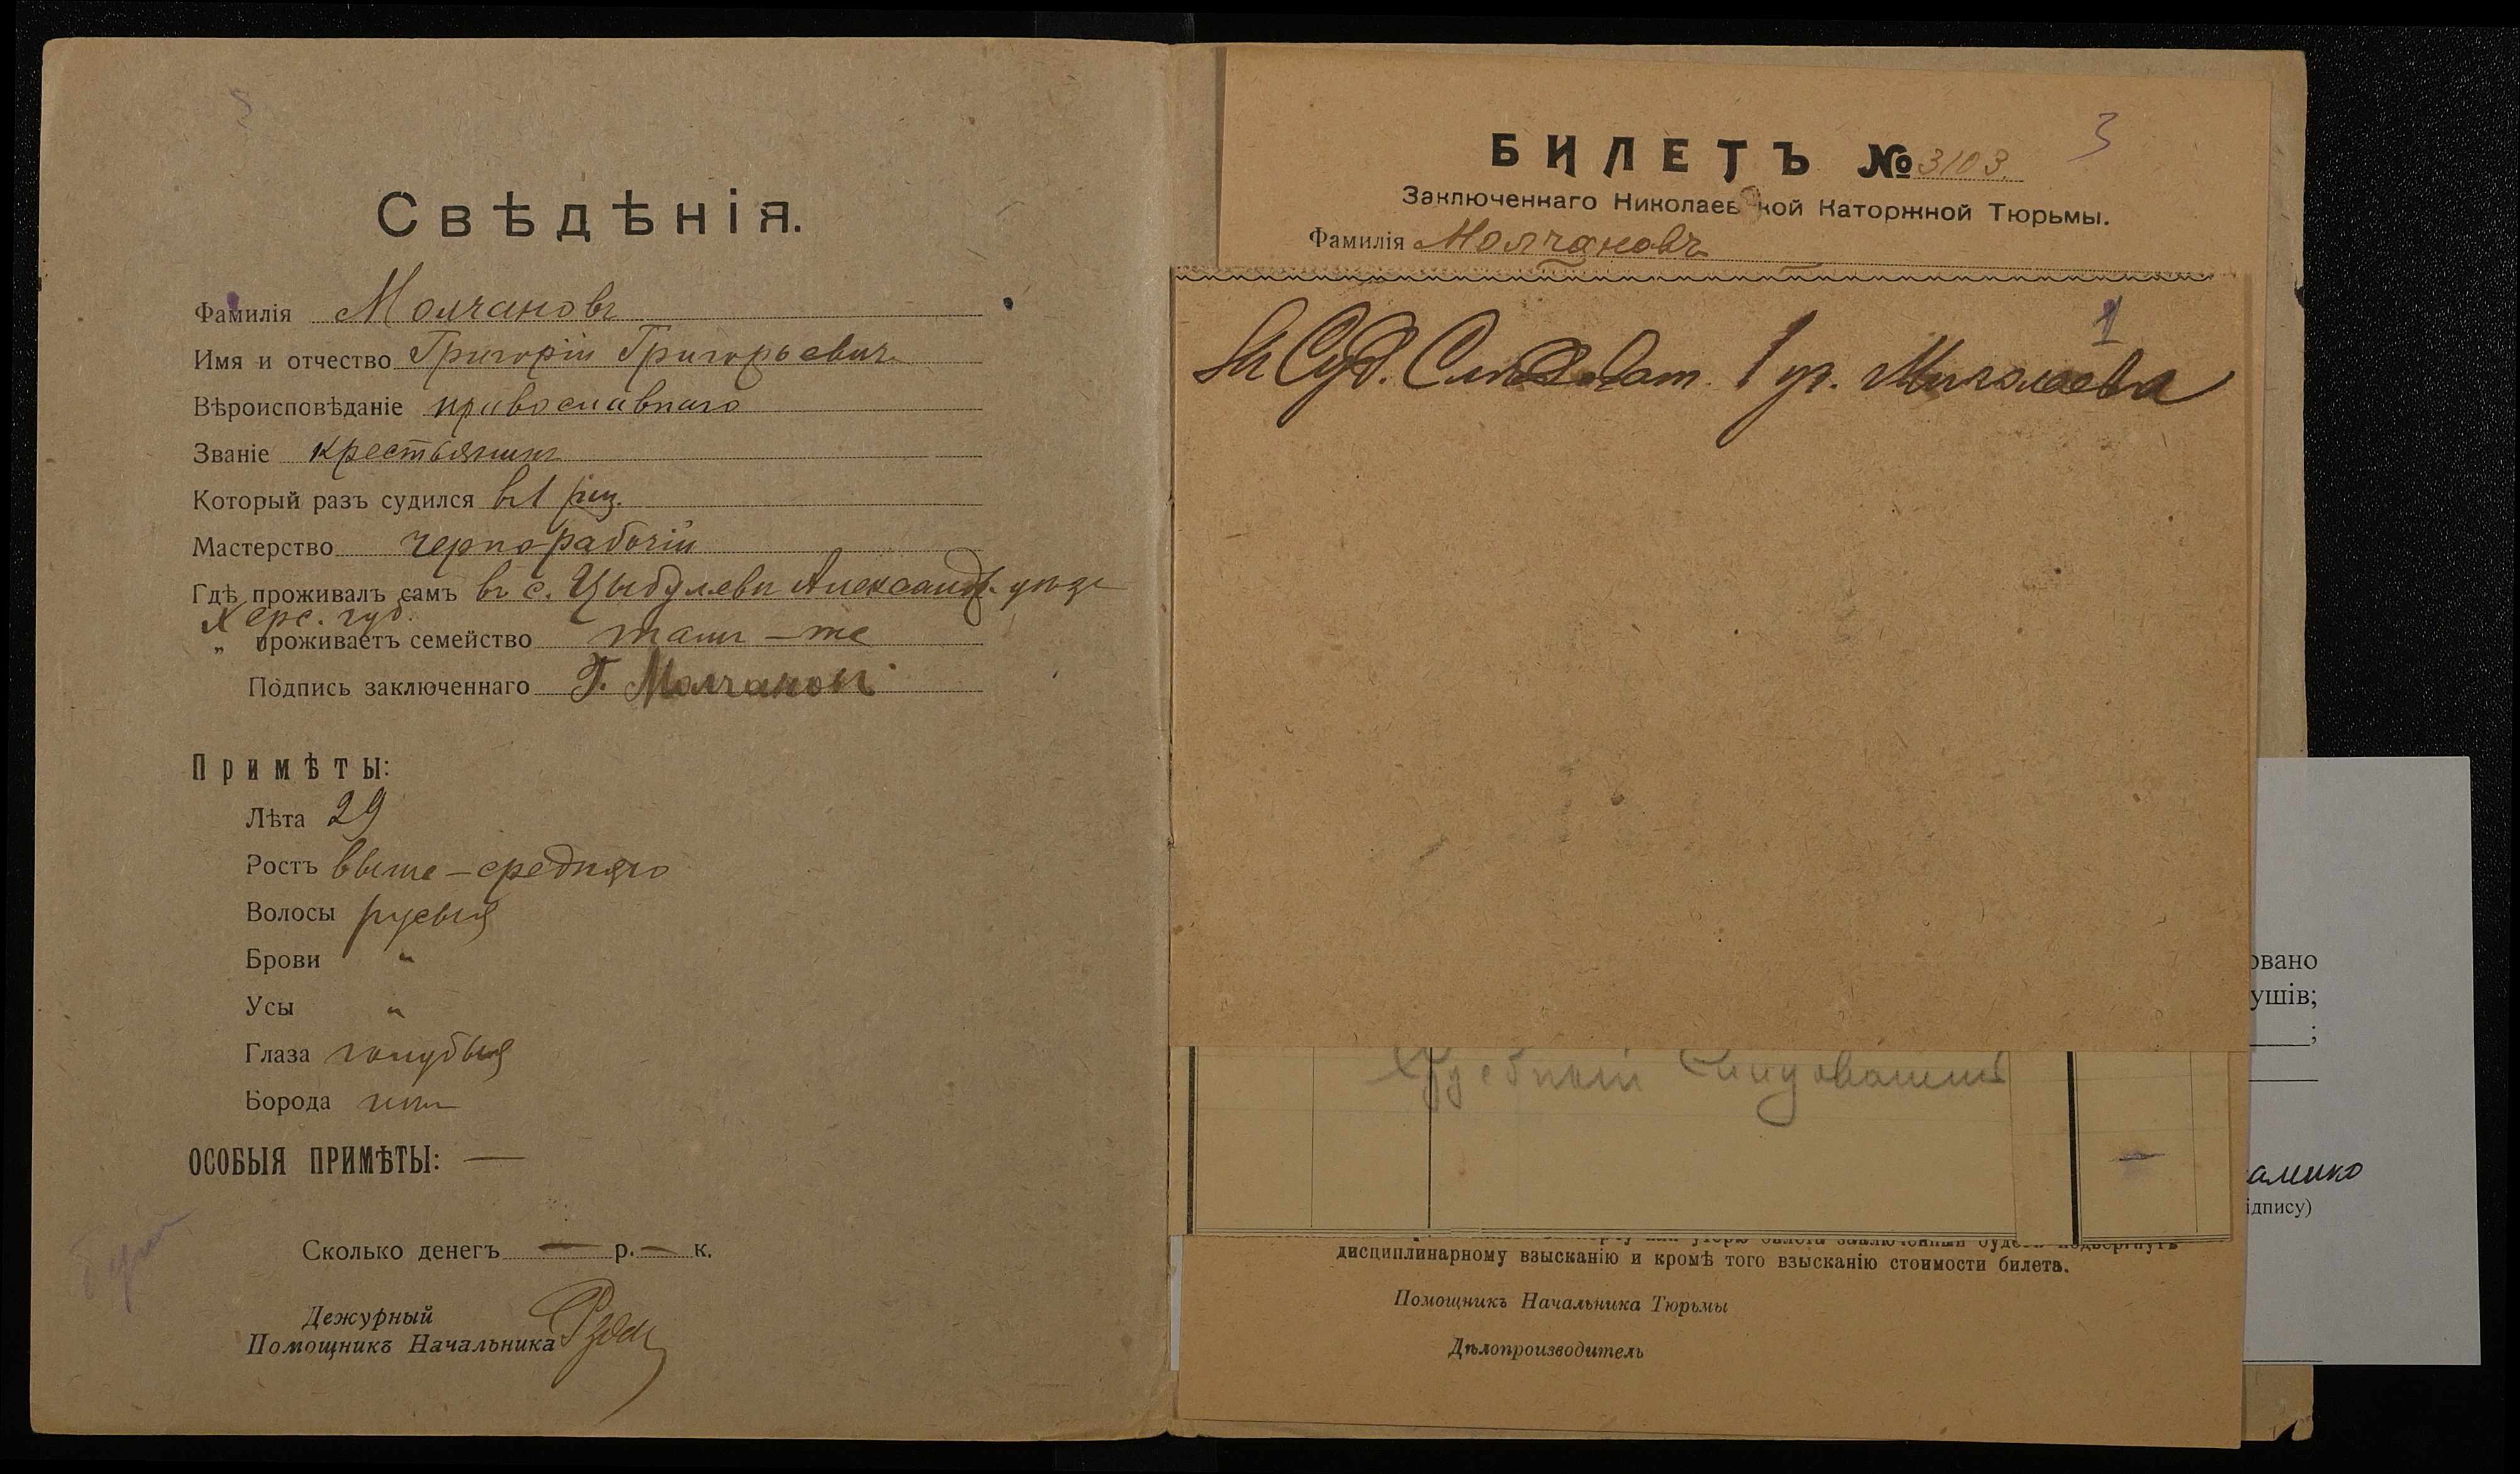 Свѣдѣнія.
Фамилія Молчановъ
Имя и отчество Григорій Григорьевич
Вѣроисповѣданіе православнаго
Званіе крестьянинъ
Который разъ судился въ 1 раз.
Мастерство чернорабочій
Гдѣ проживалъ самъ въ с. Цыбулевѣ Александр. уѣзд
Херс. губ.
„ проживаетъ семейство тамъ-же
Подпись заключеннаго Г. Молчановъ
Примѣты:
Лѣта 29
Ростъ выше-средняго
Волосы русыя
Брови "
Усы "
Глаза голубыя
Борода нѣтъ
ОСОБЫЯ ПРИМѢТЫ: —
Сколько денегъ — р. — к.
Дежурный
Помощникъ Начальника
3
БИЛЕТЪ № 3103.
Заключеннаго Николаевской Каторжной Тюрьмы.
Фамилія Молчановъ
1
Суд. Слѣдоват. 1 уч. Николаева
Судебный Слидователь
дисциплинарному взысканію и кромѣ того взысканію стоимости билета.
Помощникъ Начальника Тюрьмы
Дѣлопроизводитель
овано
ушів;
;
амико
ідпису)